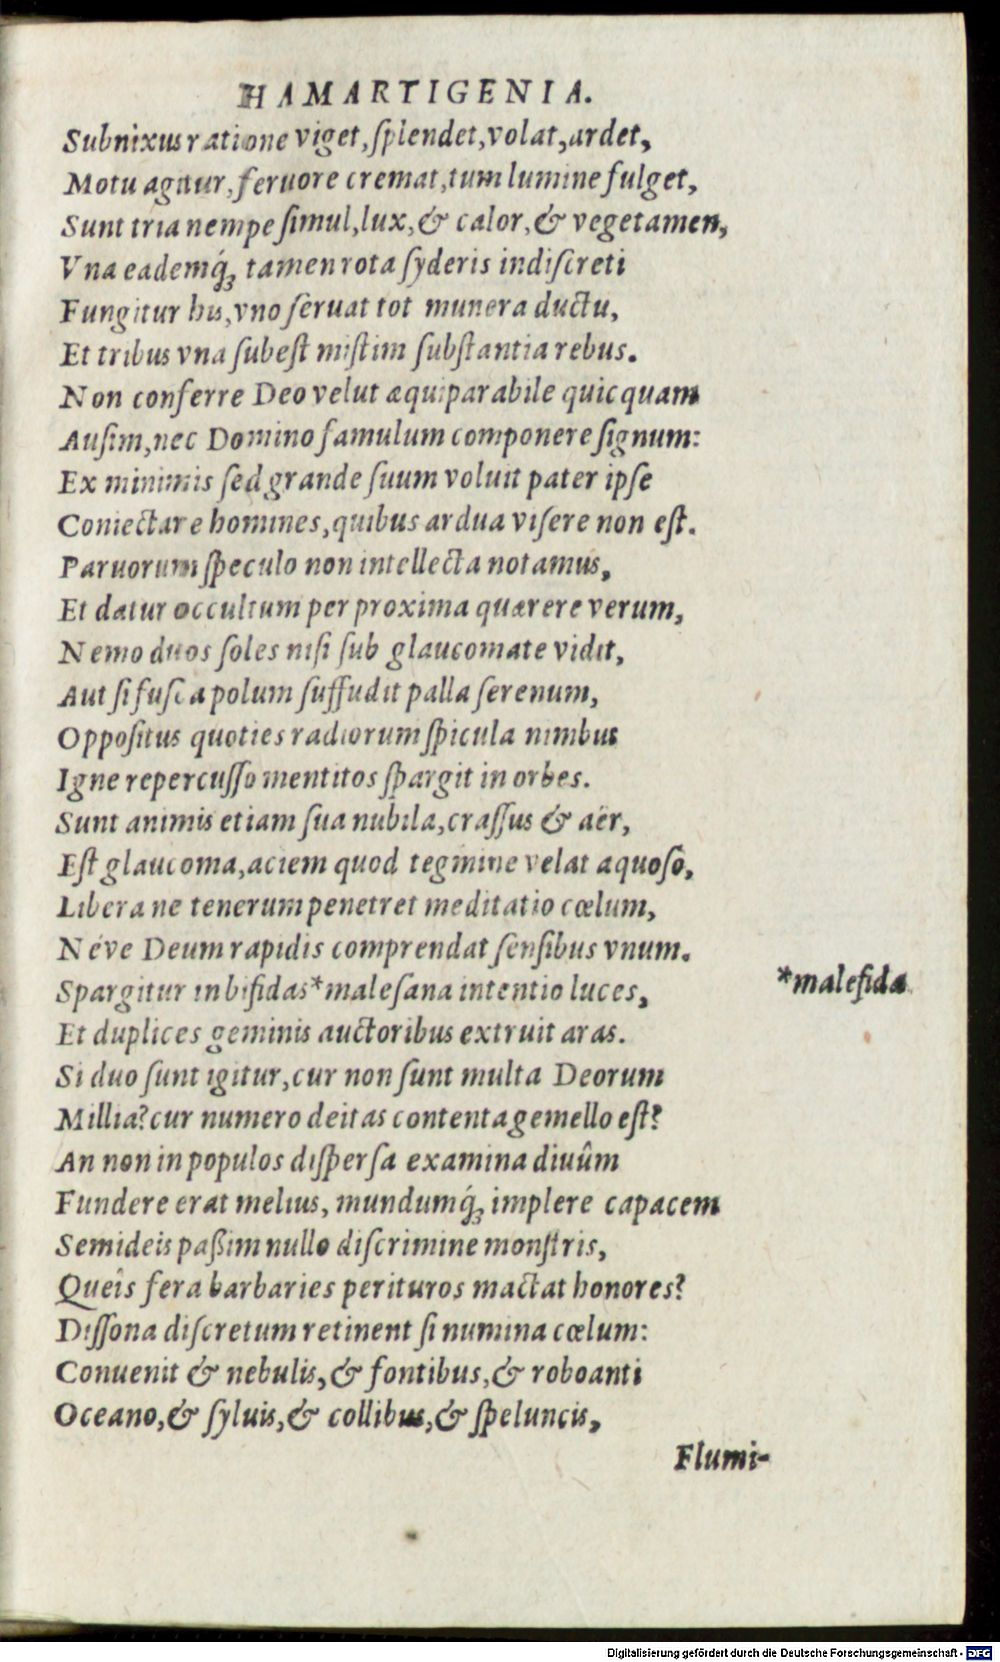 HAMARTIGENIA.
Subnixus ratione viget, ſplendet, volat, ardet,
Motu agitur, feruore cremat, tum lumine fulget,
Sunt tria nempe ſimul, lux, & calor, & vegetamen,
Vna eademq́ꝫ tamen rota ſyderis indiſcreti
Fungitur his, vno ſeruat tot munera ductu,
Et tribus vna ſubeſt miſtim ſubſtantia rebus.
Non conferre Deo velut æquiparabile quicquam
Auſim, nec Domino famulum componere ſignum:
Ex minimis ſed grande ſuum voluit pater ipſe
Coniectare homines, quibus ardua viſere non eſt.
Paruorum ſpeculo non intellecta notamus,
Et datur occultum per proxima quærere verum,
Nemo duos ſoles niſi ſub glaucomate vidit,
Aut ſi fuſca polum ſuffudit palla ſerenum,
Oppoſitus quoties radiorum ſpicula nimbus
Igne repercuſſo mentitos ſpargit in orbes.
Sunt animis etiam ſua nubila, craſſus & aër,
Eſt glaucoma, aciem quod tegmine velat aquoſo,
Libera ne tenerum penetret meditatio cœlum,
Néve Deum rapidis comprendat ſenſibus vnum.
Spargitur in bifidas*maleſana intentio luces,
*malefida
Et duplices geminis auctoribus extruit aras.
Si duo ſunt igitur, cur non ſunt multa Deorum
Millia? cur numero deitas contenta gemello eſt?
An non in populos diſperſa examina diuûm
Fundere erat melius, mundumq́ꝫ implere capacem
Semideis paßim nullo diſcrimine monſtris,
Queîs fera barbaries perituros mactat honores?
Diſſona diſcretum retinent ſi numina cœlum:
Conuenit & nebulis, & fontibus, & roboanti
Oceano, & ſyluis, & collibus, & ſpeluncis,
Flumi-
Digitalisierung gefördert durch die Deutsche Forschungsgemeinschaft - DFG